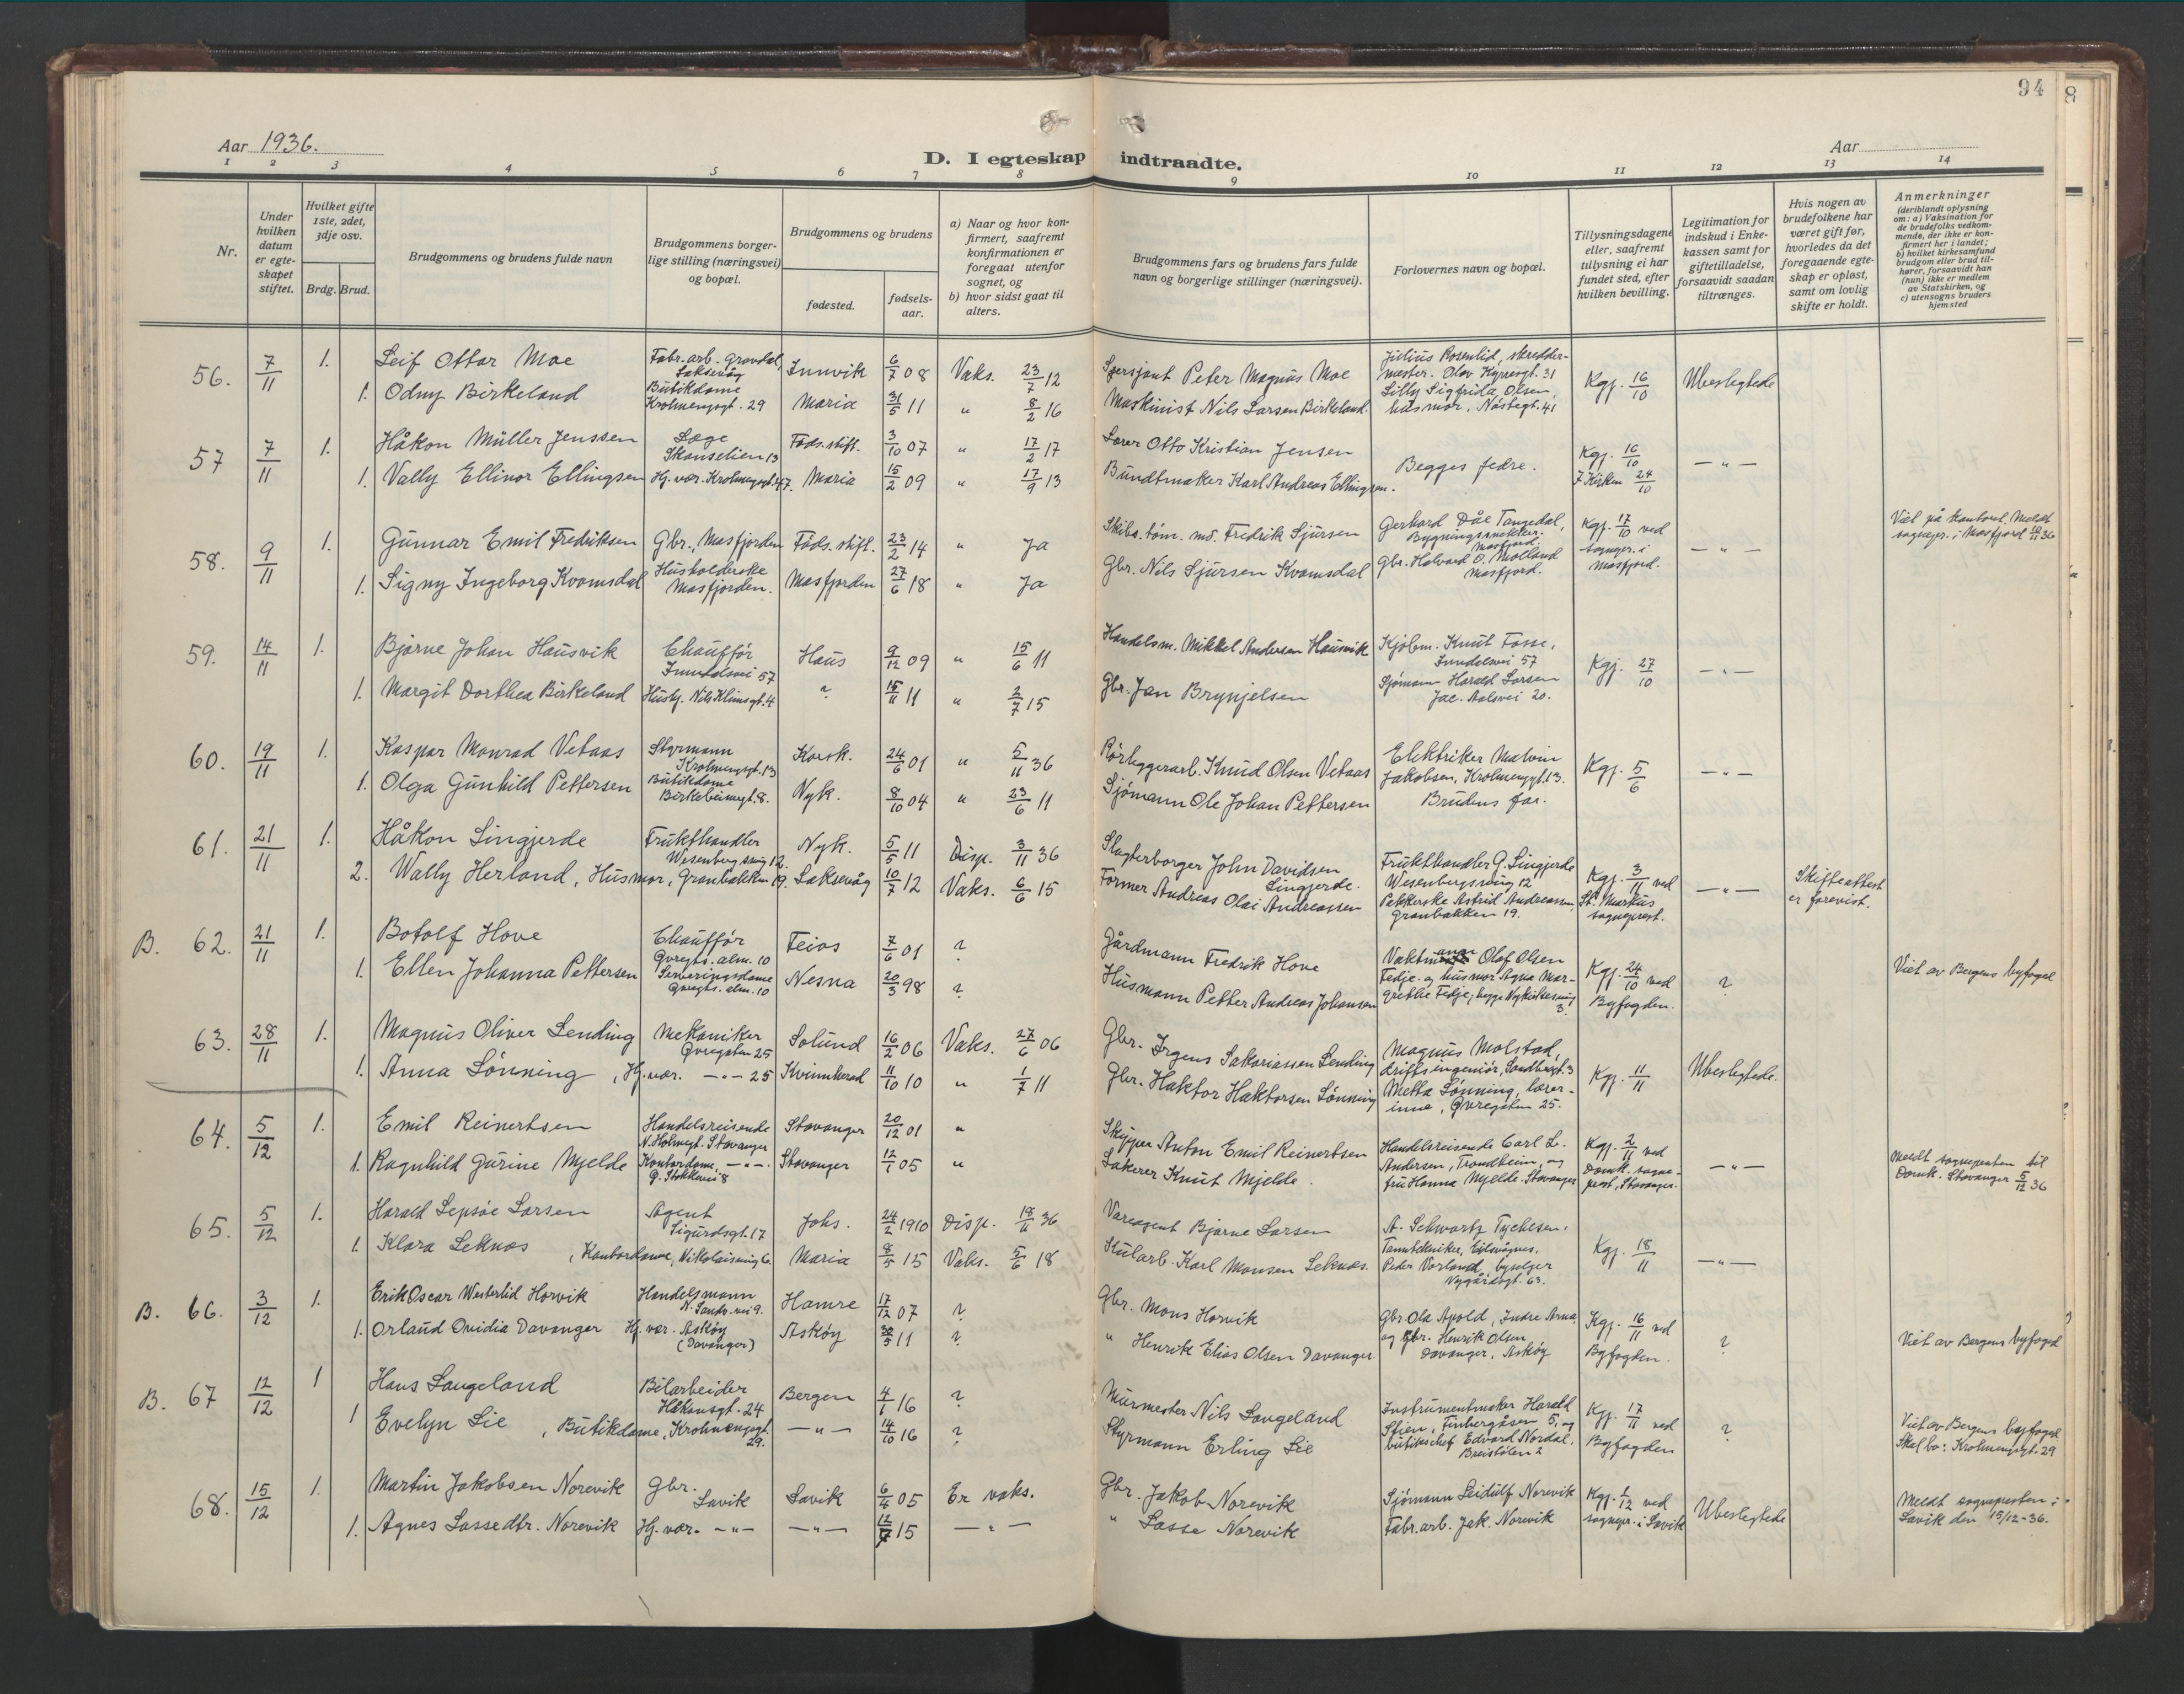 94
8
Aar 1936.
D. I egteskap indtraadte.
Aar
1 2 3 4 5 6 7 8 9 10 11 12 13 14
Nr.
Under hvilken datum er egteskapet stiftet.
Hvilket gifte 1ste, 2det, 3dje osv.
Brdg. Brud.
Brudgommens og brudens fulde navn
Brudgommens borgerlige stilling (næringsvei) og bopæl.
Brudgommens og brudens
fødested.
fødselsaar.
a) Naar og hvor konfirmert, saafremt konfirmationen er foregaat utenfor sognet, og
b) hvor sidst gaat til alters.
Brudgommens fars og brudens fars fulde navn og borgerlige stillinger (næringsvei).
Forlovernes navn og bopæl.
Tillysningsdagene eller, saafremt tillysning ei har fundet sted, efter hvilken bevilling.
Legitimation for indskud i Enkekassen samt for giftetilladelse, forsaavidt saadan tiltrænges.
Hvis nogen av brudefolkene har været gift før, hvorledes da det foregaaende egteskap er opløst, samt om lovlig skifte er holdt.
Anmerkninger
(deriblandt oplysning om: a) Vaksination for de brudefolks vedkommende, der ikke er konfirmert her i landet; b) hvilket kirkesamfund brudgom eller brud tilhører, forsaavidt han (hun) ikke er medlem av Statskirken, og c) utensogns bruders hjemsted
56. 7/11 1. Leif Ottar Moe Fabr.arb. Gravdal, Laksevåg Innvik 6/7 08 Vaks. 23/7 12 Sersjant Peter Magnus Moe Julius Rosenlid, skreddermester. Olav Kyrresgt. 31 Kgj. 16/10 Ubeslegtede
1. Odny Birkeland Butikdame Krohnengsgt. 29 Maria 31/5 11 " 8/2 16 Maskinist Nils Larsen Birkeland. Lilly Sigfrida Olsen, husmor, Nøstegt. 41
57 7/11 1. Håkon Müller Jenssen Læge Skanselien 13 Føds.stift. 3/10 07 " 17/2 17 Lærer Otto Kristian Jensen Begges fedre. Kgj. 16/10 — " —
1. Vally Ellinor Ellingsen Hj. vær. Krohnengsgt. 47. Maria 15/2 09 " 17/9 13 Bundtmaker Karl Andreas Ellingsen. I Kirken 24/10
58. 9/11 1. Gunnar Emil Fredriksen Gbr., Masfjorden Føds. stift. 23/2 14 " Ja Skibs.tøm. md. Fredrik Sjursen Gerhard Dåe Tangedal, Bygningssnekker. Masfjord. Kgj. 17/10 ved sognepr. i Masfjord. — " — Viet på kontoret. Meldt sognepr. i Masfjord 10/11 36
1. Signy Ingeborg Kvamsdal Husholderske Masfjorden. Masfjorden 27/6 18 " Ja Gbr. Nils Sjursen Kvamsdal Gbr. Halvard O. Molland Masfjord.
59. 14/11 1. Bjarne Johan Hausvik Chauffør Inndalsvei 57 Haus 9/12 09 " 15/6 11 Handelsm. Mikkel Andersen Hausvik Kjøbm. Knut Fosse, Inndalsvei 57 Kgj. 27/10 — " —
1. Margit Dorthea Birkeland Husbj. Nils Klimsgt. 4 ? 15/11 11 " 2/7 15 Gbr. Jan Brynjelsen Sjømann Harald Larsen Jac. Aalsvei 20.
60. 19/11 1. Kaspar Monrad Vetaas Styrmann Krohnengsgt. 13 Korsk. 24/6 01 " 5/11 36 Rørleggerarb. Knud Olsen Vetaas Elektriker Malvin Jakobsen, Krohnengsgt. 13. Kgj. 5/6 — " —
1. Olga Gunhild Pettersen Butikdame Birkebeinergt. 8. Nyk. 8/10 04 " 23/6 11 Sjømann Ole Johan Pettersen Brudens far.
61. 21/11 1. Håkon Lingjerde Frukthandler Wesenbergsmug 12. Nyk. 5/5 11 Disp. 3/11 36 Slagterborger John Davidsen Lingjerde. Frukthandler G. Lingjerde Wesenbergsmug 12 Kgj. 3/11 ved St. Markus sogneprest. — " — Skifteattest er forevist.
2. Wally Herland, Husmor, Granbakken 19. Laksevåg 10/7 12 Vaks. 6/6 15 Former Andreas Olai Andreassen Pekkerske Astrid Andreassen, Granbakken 19.
B. 62. 21/11 1. Botolf Hove Chauffør Øvregts. alm. 10 Feios 7/6 01 ? Gårdmann Fredrik Hove Vaktmann Olaf Olsen Fedje og husmor Agna Margrethe Fedje, begge Nykirkesmug 3. Kgj. 24/10 ved Byfogden. ? Viet av Bergens byfoged
1. Ellen Johanna Pettersen Serveringsdame Øvregts. alm. 10 Nesna 20/3 98 ? Husmann Petter Andreas Johansen
63. 28/11 1. Magnus Oliver Lending Mekaniker Øvregaten 25 Solund 16/2 06 Vaks. 27/6 06 Gbr. Irgens Sakariassen Lending Magnus Molstad, driftsingeniør, Sandbergt. 3 Kgj. 11/11 Ubeslegtede.
1. Anna Lønning, Hj.vær. — " — 25 Kvinnherad 11/10 10 " 1/7 11 Gbr. Haktor Haktorsen Lønning Metta Lønning, lærerinne, Øvregaten 25.
64. 5/12 1. Emil Reinertsen Handelsreisende N. Holmegt. Stavanger Stavanger 20/12 01 " Skipper Anton Emil Reinertsen Handelsreisende Carl L. Andersen, Trondheim, og Kgj. 2/11 ved Domk. sogneprest, Stavanger. — " — Meldt sogneprsten til Domk. Stavanger 5/12 36
1. Ragnhild Gurine Mjelde Kontordame, — " —. G. Stokkavei 8 Stavanger 12/1 05 " Lakerer Knut Mjelde. fru Hanna Mjelde. Stavanger
65. 5/12 1. Harald Lepsøe Larsen Agent Sigurdsgt. 17 Johs. 24/2 1910 Disp. 18/11 36 Vareagent Bjarne Larsen A. Schwartz Tychesen, Tanntekniker, Eidsvågnes. Kgj. 18/11 — " —
1. Klara Leknes, Kontordame, Nikolaismug 6. Maria 8/5 15 Vaks. 5/6 18 Kularb. Karl Monsen Leknes. Peder Vorland, byselger Nygårdsgt. 63.
B. 66. 3/12 1. Erik Oscar Westerlid Horvik Handelsmann N. Sandv.vei 9. Hamre 17/12 07 ? Gbr. Mons Horvik Gbr. Ola Apold, Indre Arna, Kgj. 16/11 ved Byfogden. ? Viet av Bergens byfoged
1. Orlaud Ovidia Davanger Hj. vær. Askøy (Davanger) Askøy 30/5 11 ? " Henrik Elias Olsen Davanger. og Gbr. Henrik Olsen Davanger, Askøy
B. 67 12/12 1 Hans Langeland Bilarbeider Håkonsgt. 24 Bergen 4/1 16 ? Murmester Nils Langeland Instrumentmaker Harald Stien, Finbergåsen 5, og Kgj. 17/11 ved Byfogden ? Viet av Bergens byfoged Skal bo: Krohnengsgt. 29
1 Evelyn Lie, Butikdame, Krohnengsgt. 29. — " — 14/10 16 ? Styrmann Erling Lie butikschef Edvard Nordal, Breistølen 2
68. 15/12 1. Martin Jakobsen Norevik Gbr. Lavik Lavik 6/4 05 Er vaks. Gbr. Jakob Norevik Sjømann Leidulf Norevik Kgj. 1/12 ved sognepr. i Lavik Ubeslegtede Meldt sogneprsten i Lavik den 15/12-36.
1. Agnes Lassedtr. Norevik Hj. vær. — " — — " — 12/7 15 — " — " Lasse Norevik Fabr.arb. Jak. Norevik